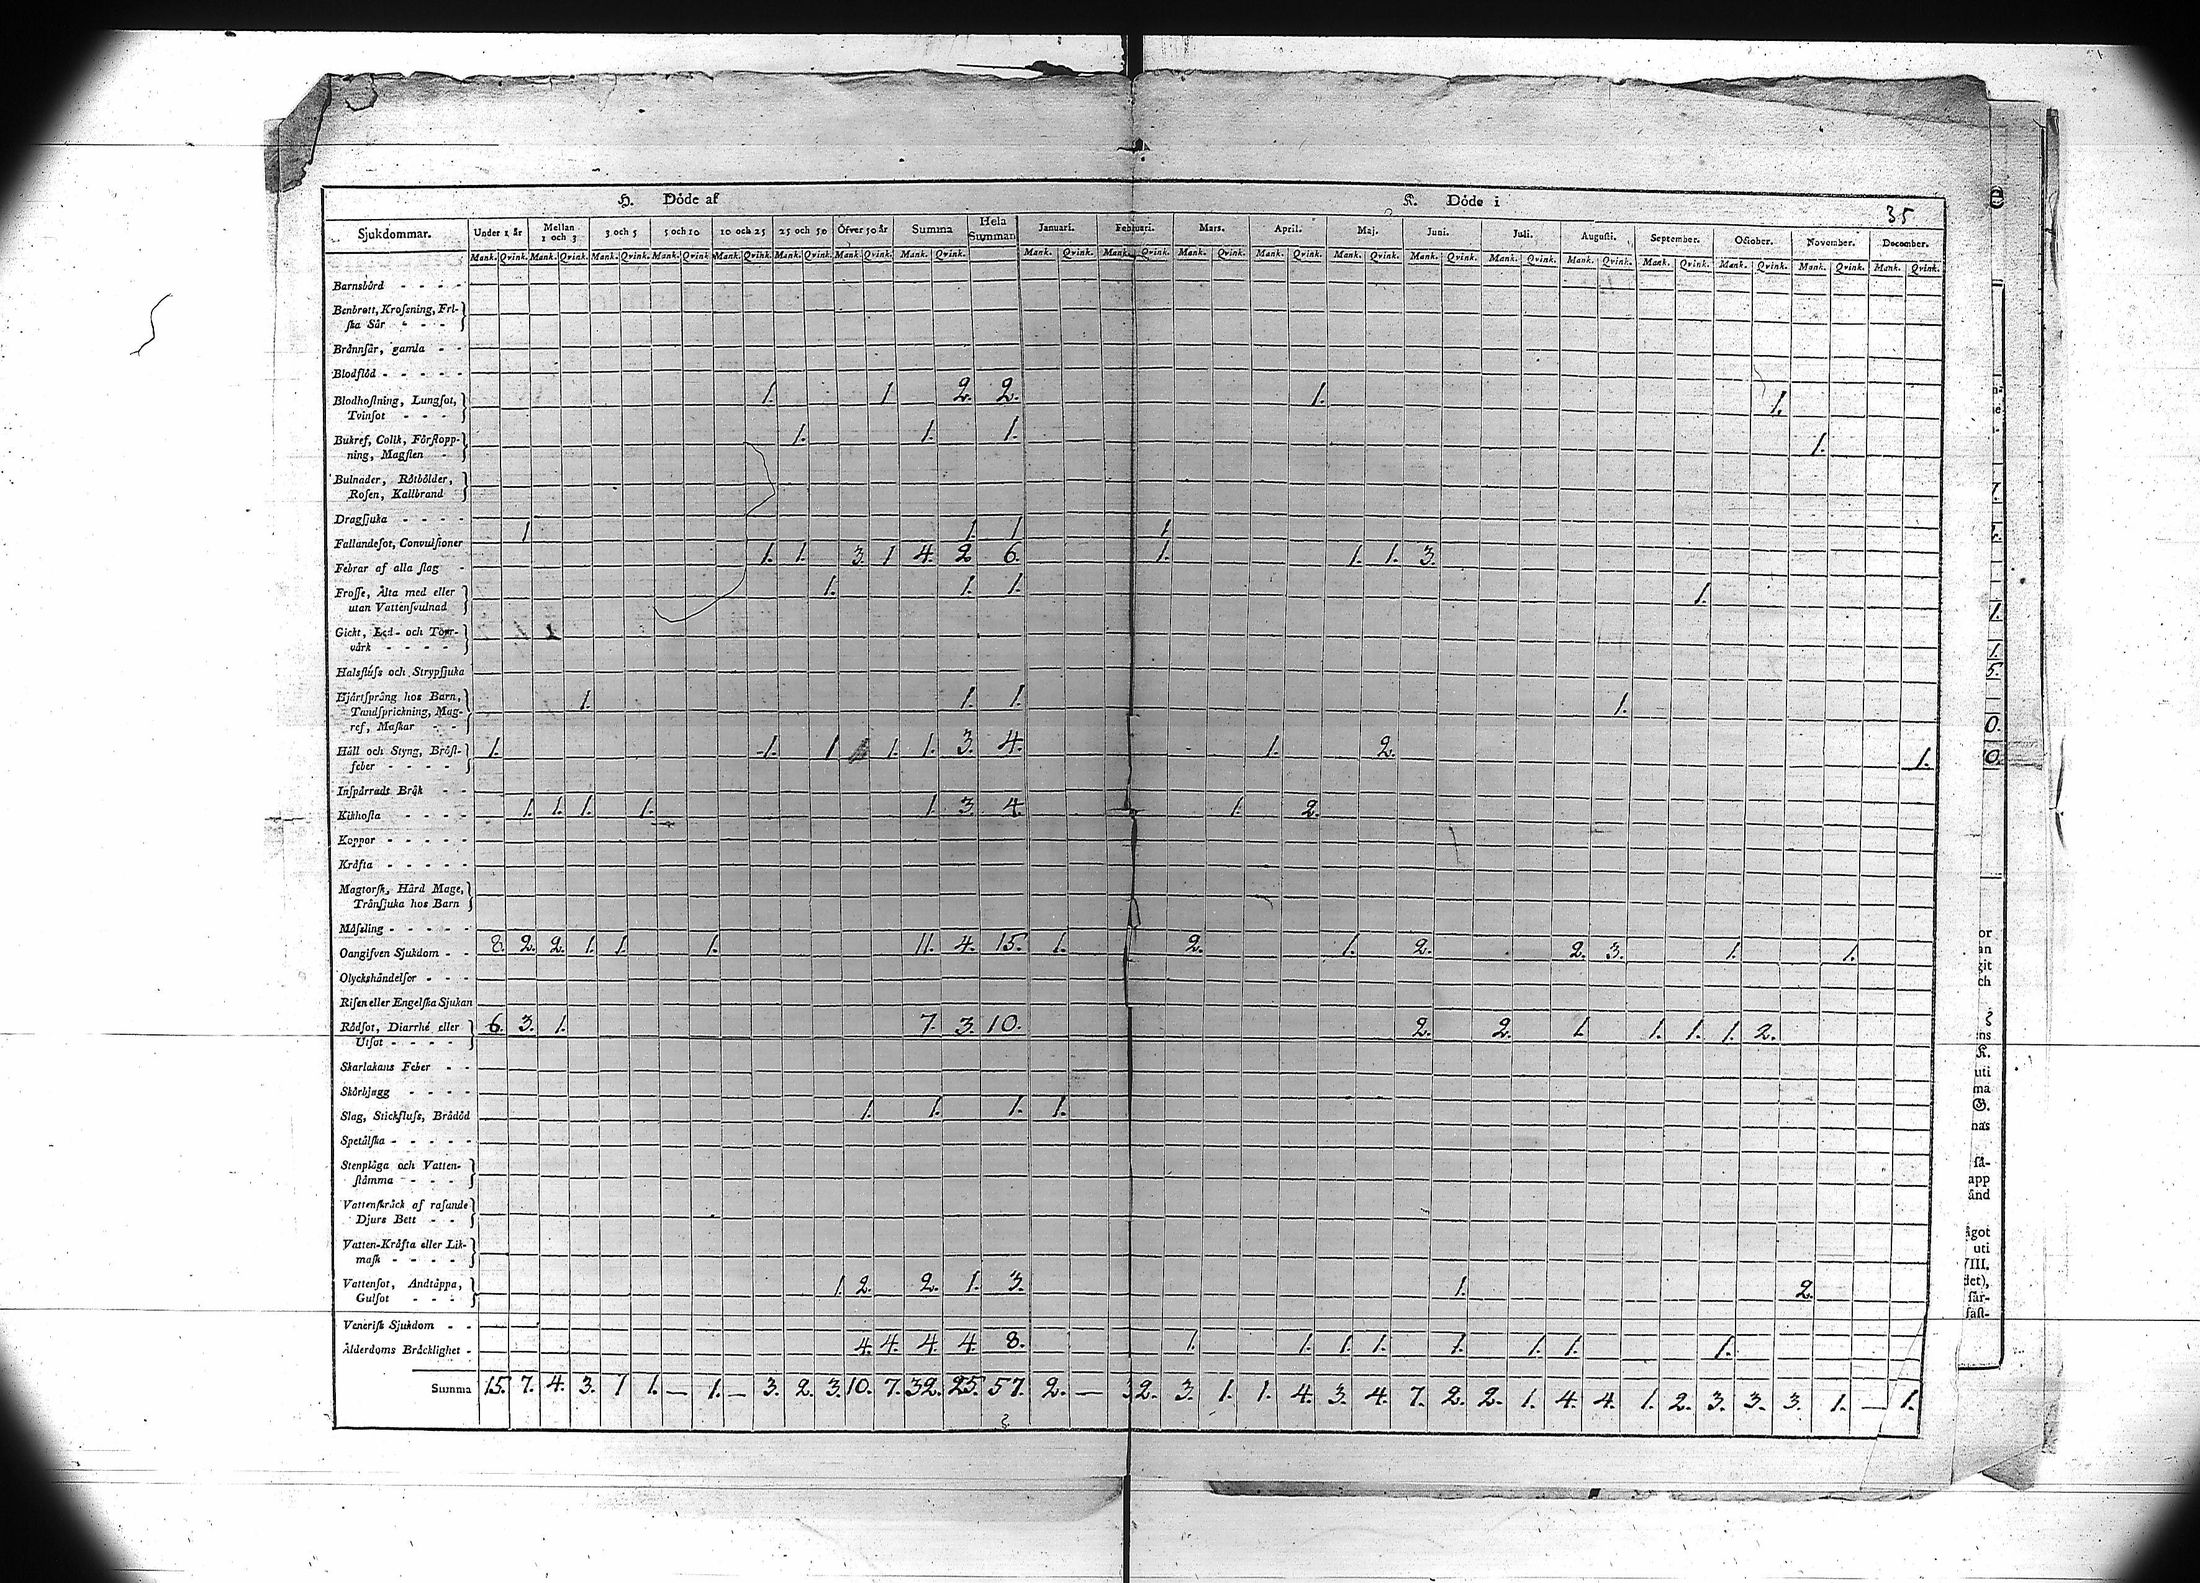 H. Döde af K. Döde i 35
Sjukdommar. Under 1 år Mellan 1 och 3 3 och 5 5 och 10 10 och 25 25 och 50 Öfver 50 år Summa Hela Summan Januari. Februari. Mars. April. Maj. Juni. Juli. Augusti. September. October. November. December.
Mank. Qvink. Mank. Qvink. Mank. Qvink. Mank. Qvink Mank. Qvink. Mank. Qvink. Mank. Qvink. Mank. Qvink. Mank. Qvink. Mank. Qvink. Mank. Qvink. Mank. Qvink. Mank. Qvink. Mank. Qvink. Mank. Qvink. Mank. Qvink. Mank. Qvink. Mank. Qvink. Mank. Qvink. Mank. Qvink.
Barnsbörd - - - -
Benbrott, Krossning, Fri-
ska Sår - - -
Brännsår, gamla - -
Blodflöd - - - - -
Blodhostning, Lungsot, 1. 1 2. 2. 1. 1.
Tvinsot - - -
Bukref, Colik, Förstopp- 1. 1. 1. 1.
ning, Magsten -
Bulnader, Rötbölder,
Rosen, Kallbrand
Dragsjuka - - - -
Fallandesot, Convulsioner 1 1. 1 1
Febrar af alla slag - 1. 1. 3. 1 4. 2. 6. 1. 1. 1. 3.
Frosse, Älta med eller 1. 1. 1. 1.
utan Vattensvulnad
Gickt, Led- och Torr-
värk - - - -
Halsfluss och Strypsjuka
Hjärtsprång hos Barn, 1. 1. 1. 1.
Tandsprickning, Mag-
ref, Maskar - -
Håll och Styng, Bröst- 1. 1. 1 1. 1. 3. 4. 1. 2. 1.
feber - - - -
Inspärradt Bråk - -
Kikhosta - - - - 1. 1. 1. 1. 1. 3. 4. 1. 2.
Koppor - - - - -
Kräfta - - - - -
Magtorsk, Hård Mage,
Trånsjuka hos Barn
Mässling - - - - -
Oangifven Sjukdom - - 8. 2. 2. 1. 1. 1. 11. 4. 15. 1. 2. 1. 2. 2. 3. 1. 1.
Olyckshändelser - -
Risen eller Engelska Sjukan
Rödsot, Diarrhé eller 6. 3. 1. 7. 3. 10. 2. 2. 1. 1. 1. 1. 2.
Utsot - - - -
Skarlakans Feber - -
Skörbjugg - - - -
Slag, Stickfluss, Brådöd 1. 1. 1. 1.
Spetälska - - - - -
Stenplåga och Vatten-
stämma - - -
Vattenskräck af rasande
Djurs Bett - -
Vatten-Kräfta eller Lik-
mask - - - -
Vattensot, Andtäppa, 1. 2. 2. 1. 3. 1. 2.
Gulsot - - -
Venerisk Sjukdom - -
Ålderdoms Bräcklighet - 4. 4. 4. 4. 8. 1. 1. 1. 1. 1. 1. 1. 1.
Summa 15. 7. 4. 3. 1 1. — 1. — 3. 2. 3. 10. 7. 32. 25. 57. 2. — 2. 3. 1. 1. 4. 3. 4. 7. 2. 2. 1. 4. 4. 1. 2. 3. 3. 3. 1. — 1.